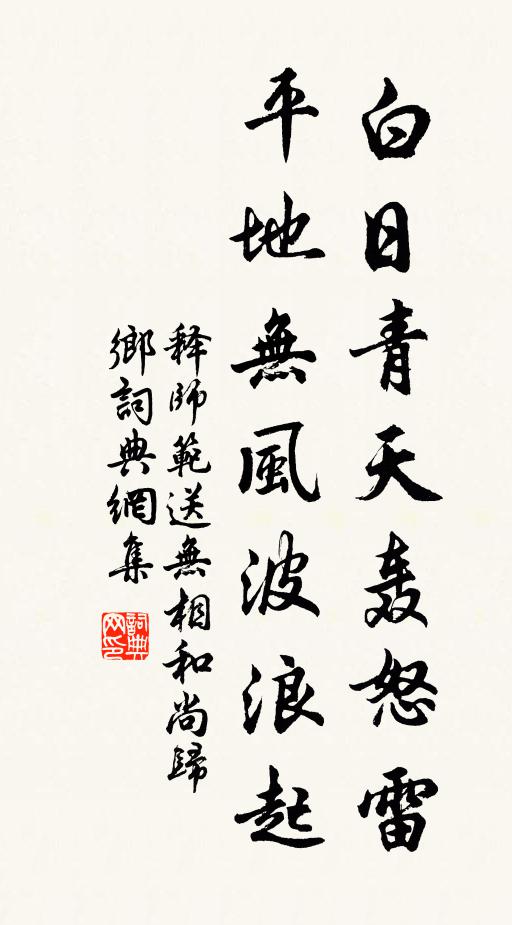 白日青天轰怒雷
平地無風波浪起
释師範送無相和尚歸
鄉詞典網集
詞典网印